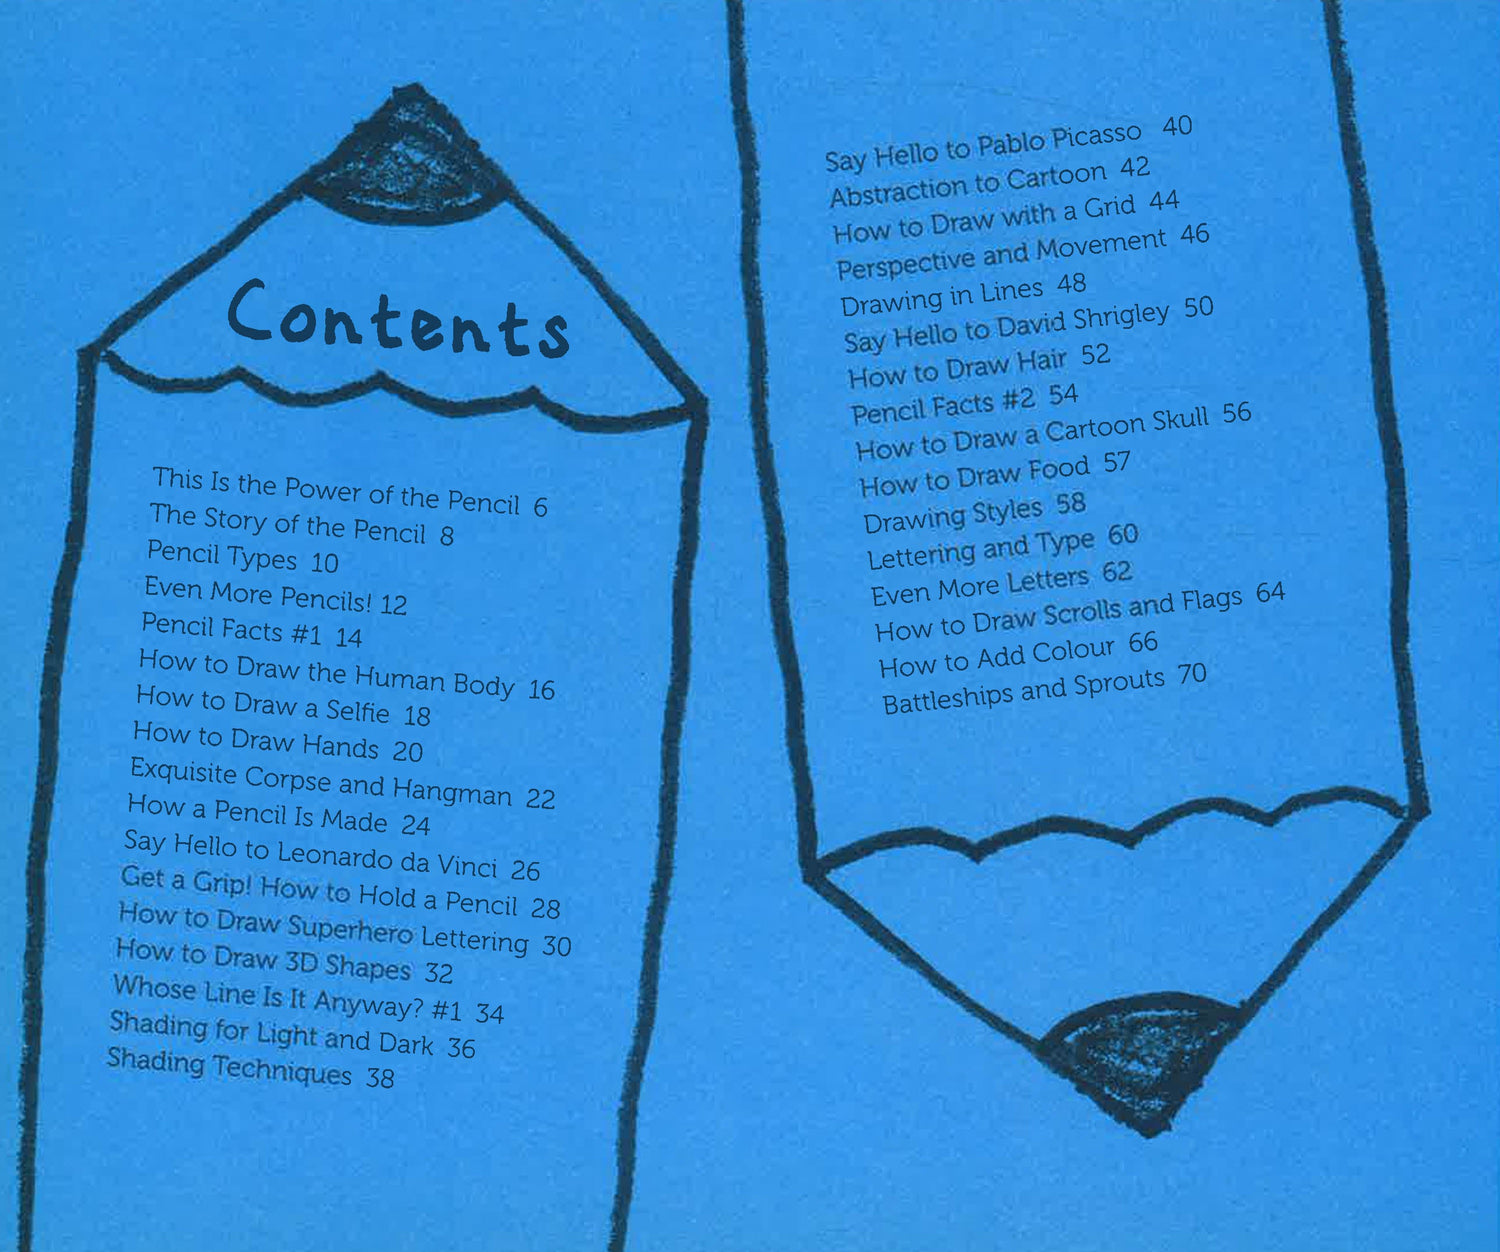 Contents
This Is the Power of the Pencil 6
The Story of the Pencil 8
Pencil Types 10
Even More Pencils! 12
Pencil Facts #1 14
How to Draw the Human Body 16
How to Draw a Selfie 18
How to Draw Hands 20
Exquisite Corpse and Hangman 22
How a Pencil Is Made 24
Say Hello to Leonardo da Vinci 26
Get a Grip! How to Hold a Pencil 28
How to Draw Superhero Lettering 30
How to Draw 3D Shapes 32
Whose Line Is It Anyway? #1 34
Shading for Light and Dark 36
Shading Techniques 38
Say Hello to Pablo Picasso 40
Abstraction to Cartoon 42
How to Draw with a Grid 44
Perspective and Movement 46
Drawing in Lines 48
Say Hello to David Shrigley 50
How to Draw Hair 52
Pencil Facts #2 54
How to Draw a Cartoon Skull 56
How to Draw Food 57
Drawing Styles 58
Lettering and Type 60
Even More Letters 62
How to Draw Scrolls and Flags 64
How to Add Colour 66
Battleships and Sprouts 70